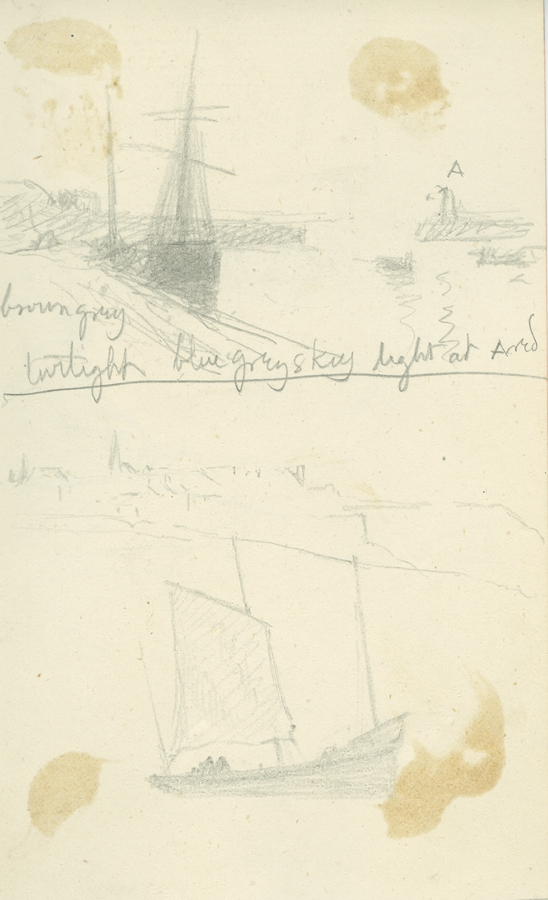 A
brown grey
twilight blue grey sky light at A red